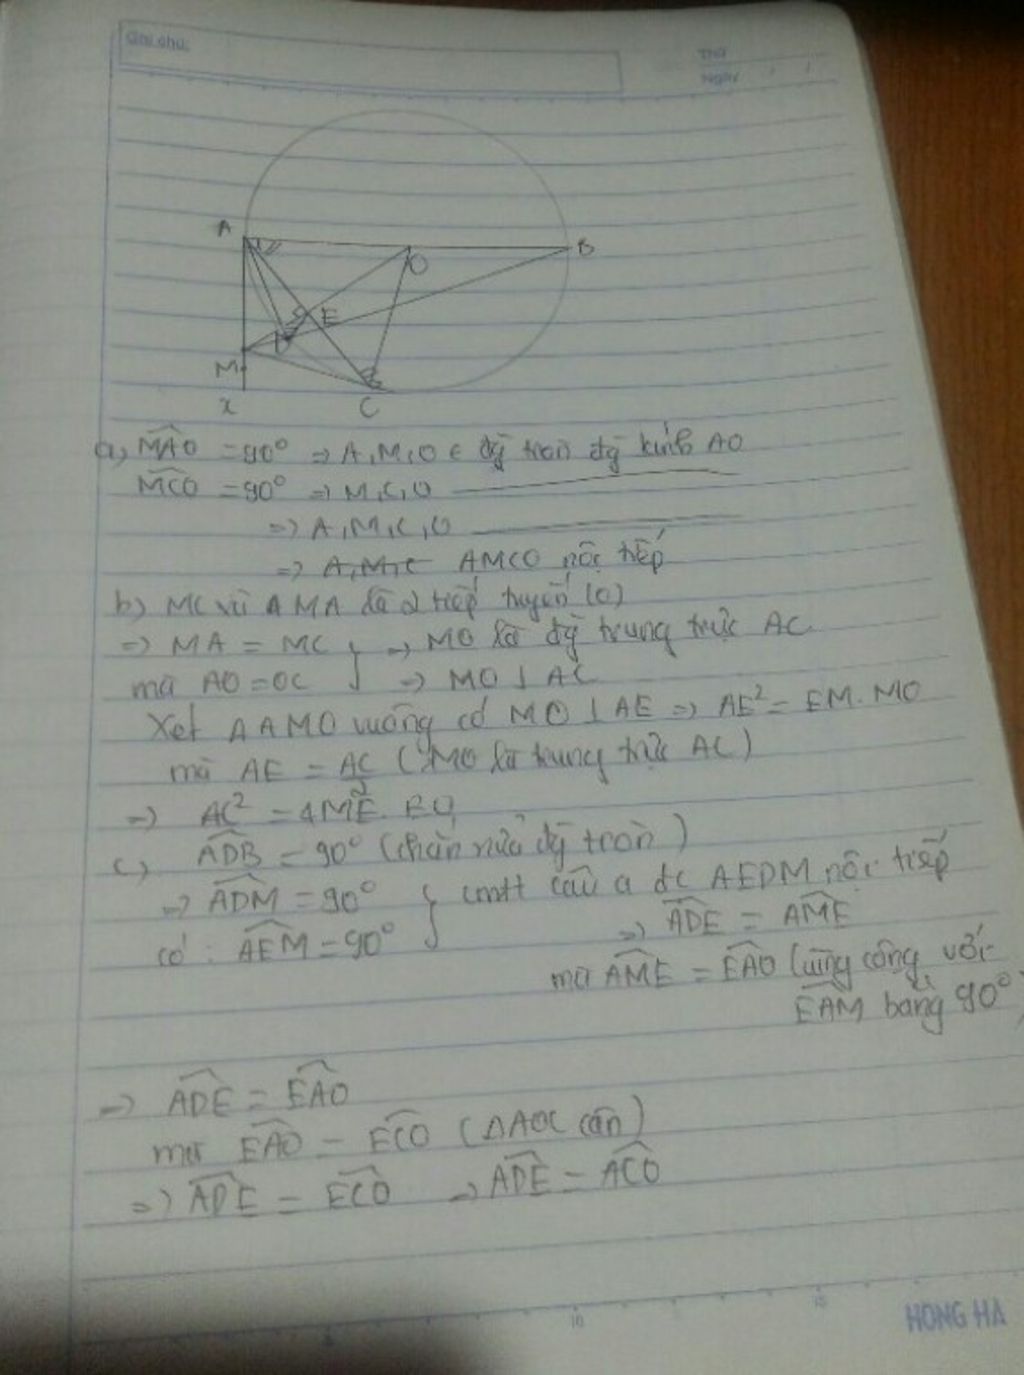 Ghi chú:
Thứ
Ngày
A
O
B
E
D
M
x
C
a, MAO = 90° => A, M, O ∈ đg tròn đg kính AO
MCO = 90° => M, C, O
=> A, M, C, O
=> A, M, C AMCO nội tiếp
b) MC và MA là 2 tiếp tuyến (O)
=> MA = MC } => MO là đg trung trực AC
mà AO = OC => MO ⊥ AC
Xét Δ AMO vuông có MO ⊥ AE => AE² = EM. MO
mà AE = AC/2 (MO là trung trực AC)
=> AC² = 4ME. EO
c) ADB = 90° (chắn nửa đg tròn)
=> ADM = 90° } cmtt câu a đc AEDM nội tiếp
có: AEM = 90° => ADE = AME
mà AME = EAO (cùng cộng với
EAM bằng 90°)
=> ADE = EAO
mà EAO = ECO (ΔAOC cân)
=> ADE = ECO => ADE = ACO
10
15
HONG HA